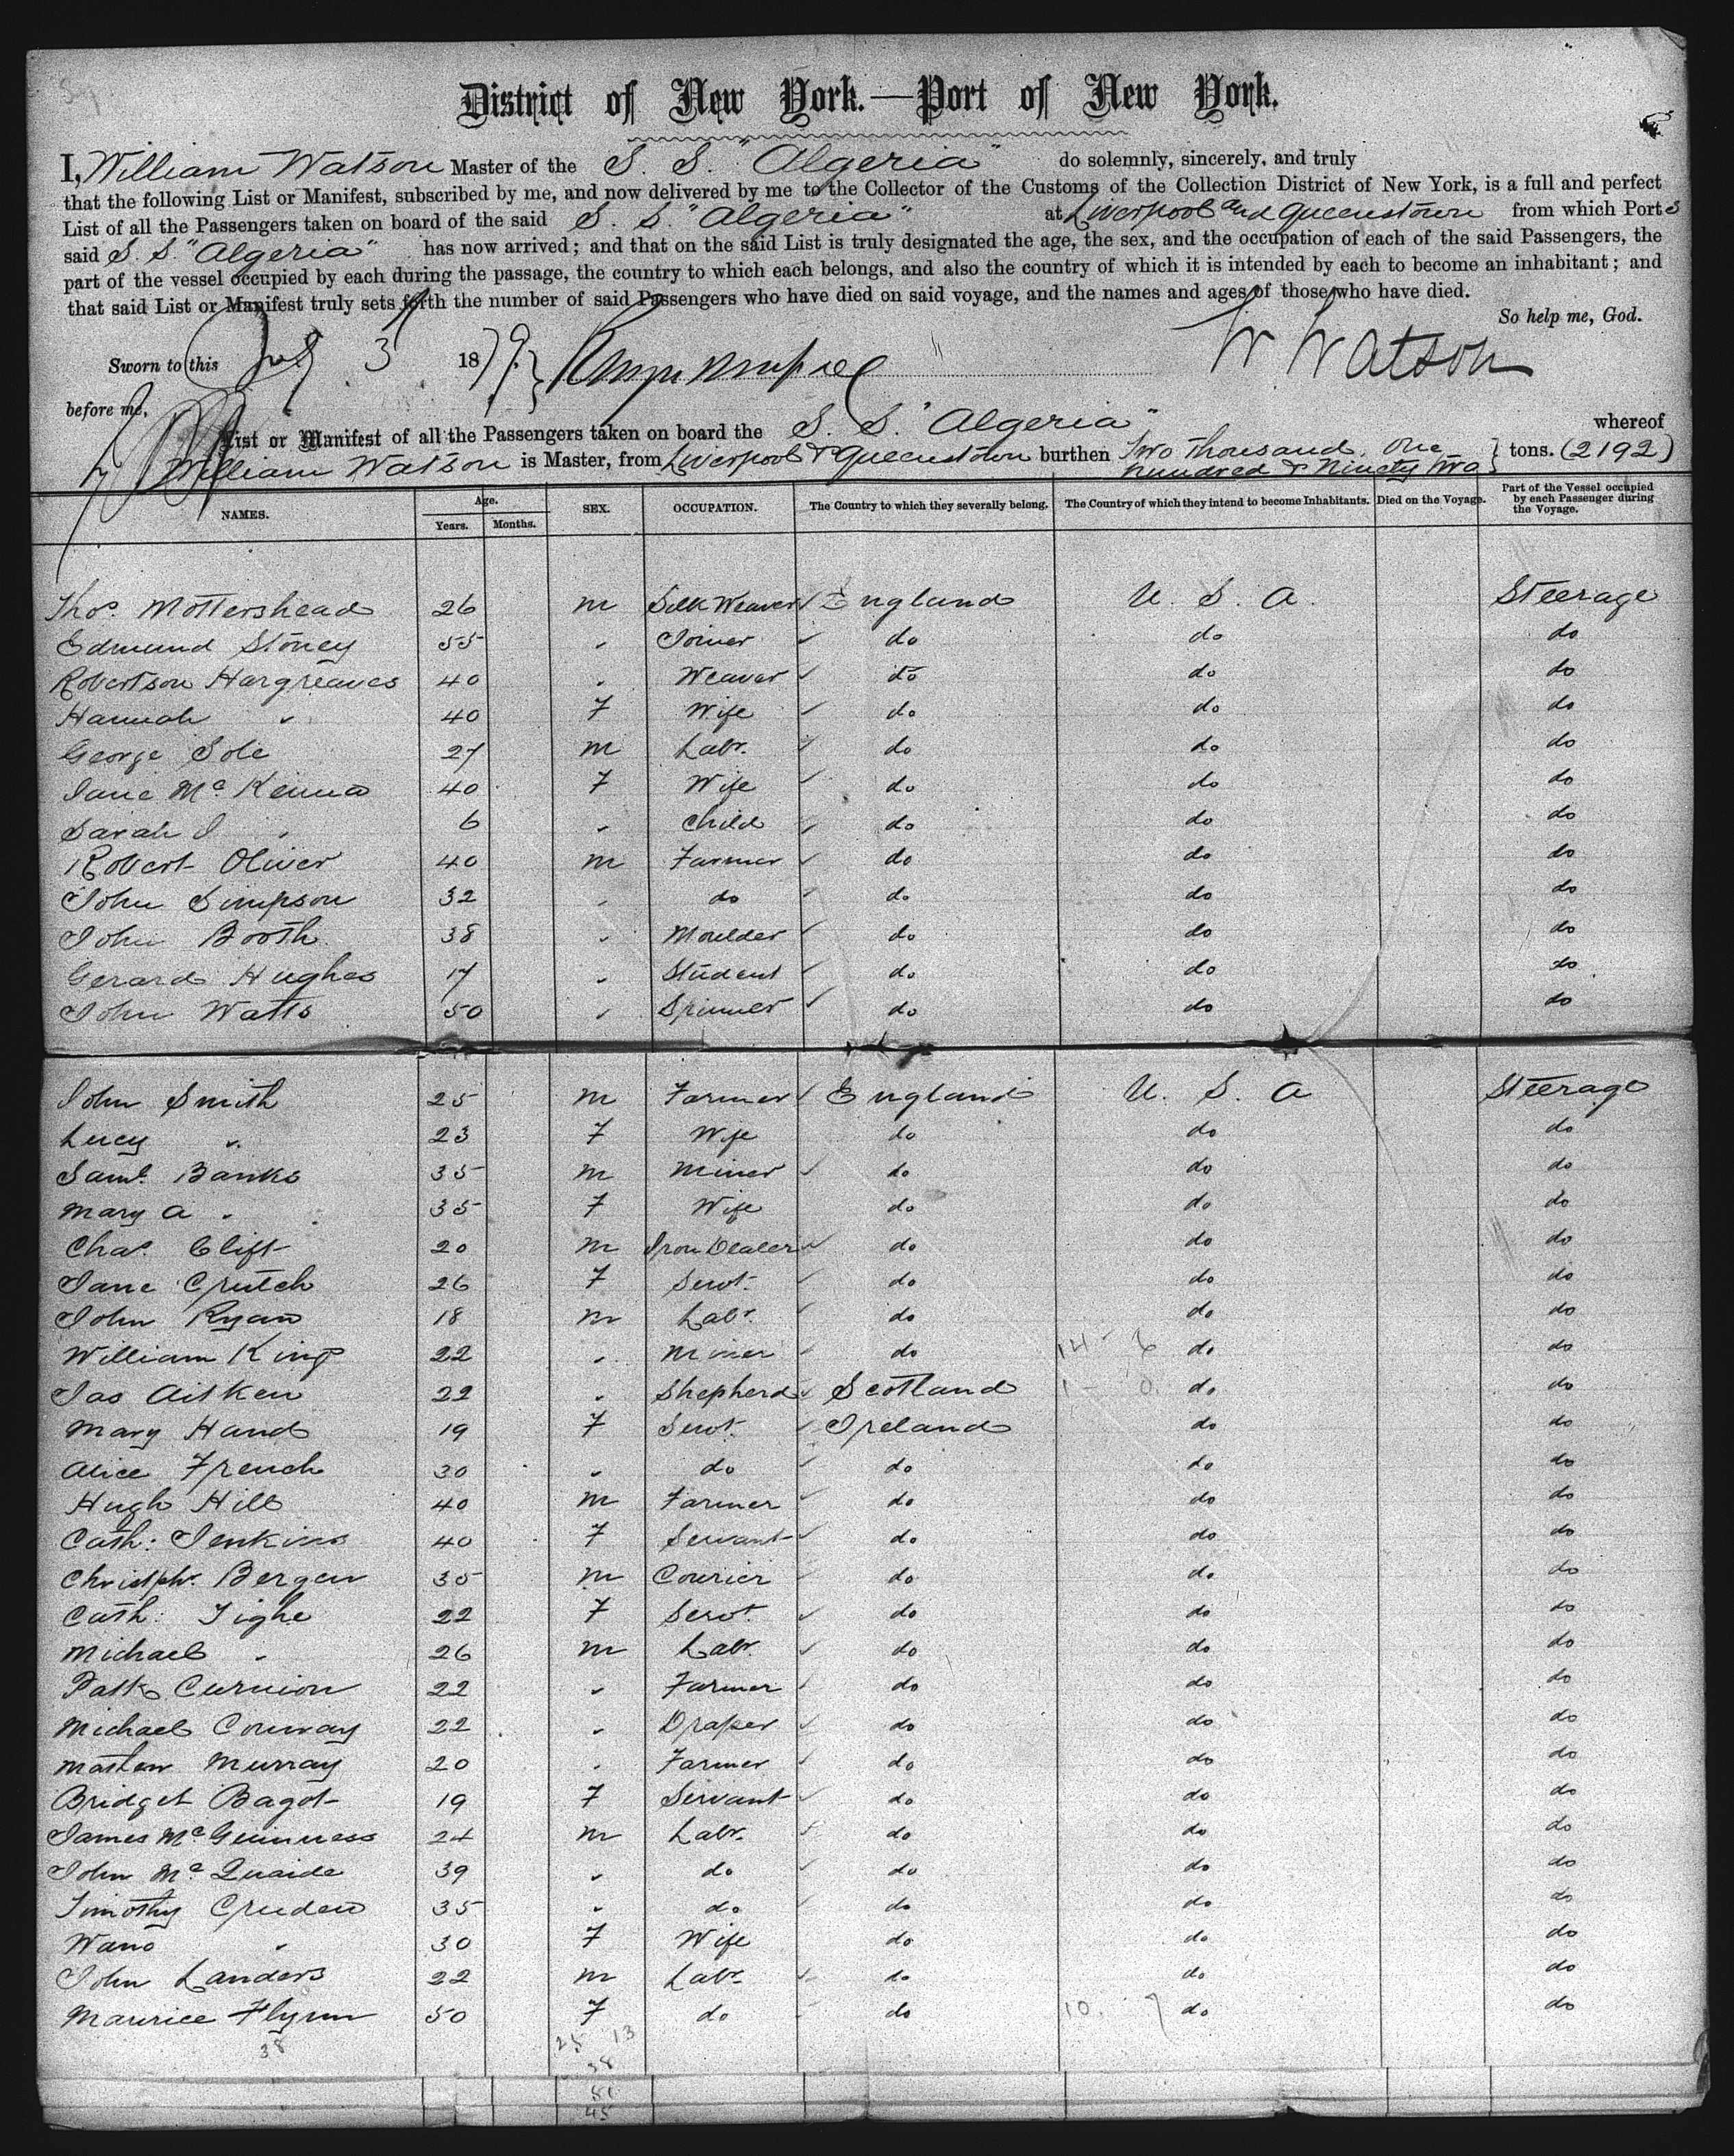 District of New York.—Port of New York.
I, William Watson Master of the S. S. "Algeria" do solemnly, sincerely, and truly
that the following List or Manifest, subscribed by me, and now delivered by me to the Collector of the Customs of the Collection District of New York, is a full and perfect
List of all the Passengers taken on board of the said S. S. "Algeria" at Liverpool and Queenstown from which Ports
said S. S. "Algeria" has now arrived; and that on the said List is truly designated the age, the sex, and the occupation of each of the said Passengers, the
part of the vessel occupied by each during the passage, the country to which each belongs, and also the country of which it is intended by each to become an inhabitant; and
that said List or Manifest truly sets forth the number of said Passengers who have died on said voyage, and the names and ages of those who have died.
So help me, God.
Sworn to this July 3 1879 W Watson
before me,
List or Manifest of all the Passengers taken on board the S. S. "Algeria" whereof
William Watson is Master, from Liverpool & Queenstown burthen Two Thousand One hundred & Ninety two tons. (2192)
NAMES. Age. Years. Months. SEX. OCCUPATION. The Country to which they severally belong. The Country of which they intend to become Inhabitants. Died on the Voyage. Part of the Vessel occupied by each Passenger during the Voyage.
Thos. Mottershead 26 m Silk Weaver England U. S. A. Steerage
Edmund Stoney 55 " Joiner do do do
Robertson Hargreaves 40 " Weaver do do do
Hannah " 40 F Wife do do do
George Sole 27 m Labr. do do do
Jane McKenna 40 F Wife do do do
Sarah J " 6 " Child do do do
Robert Oliver 40 m Farmer do do do
John Simpson 32 " do do do do
John Booth 38 " Moulder do do do
Gerard Hughes 17 " Student do do do
John Watts 50 " Spinner do do do
John Smith 25 m Farmer England U. S. A Steerage
Lucy " 23 F Wife do do do
Saml. Banks 35 m Miner do do do
Mary A " 35 F Wife do do do
Chas. Clift 20 m Iron Dealer do do do
Jane Crutch 26 F Servt. do do do
John Ryan 18 m Labr. do do do
William King 22 " Miner do 14 - 6 do do
Jas Aitken 22 " Shepherd Scotland 1 - 0 do do
Mary Hand 19 F Servt. Ireland do do
Alice French 30 " do do do do
Hugh Hill 40 m Farmer do do do
Cath: Jenkins 40 F Servant do do do
Christphr. Bergen 35 m Courier do do do
Cath: Tighe 22 F Servt. do do do
Michael " 26 m Labr. do do do
Patk Curnion 22 " Farmer do do do
Michael Conway 22 " Draper do do do
Mathew Murray 20 " Farmer do do do
Bridget Bagot 19 F Servant do do do
James McGuinness 24 m Labr. do do do
John McQuaide 39 " do do do do
Timothy Cruden 35 " do do do do
Wano " 30 F Wife do do do
John Landers 22 m Labr. do do do
Maurice Flynn 50 F do do 10. 7 do do
38 25 13
38
81
45